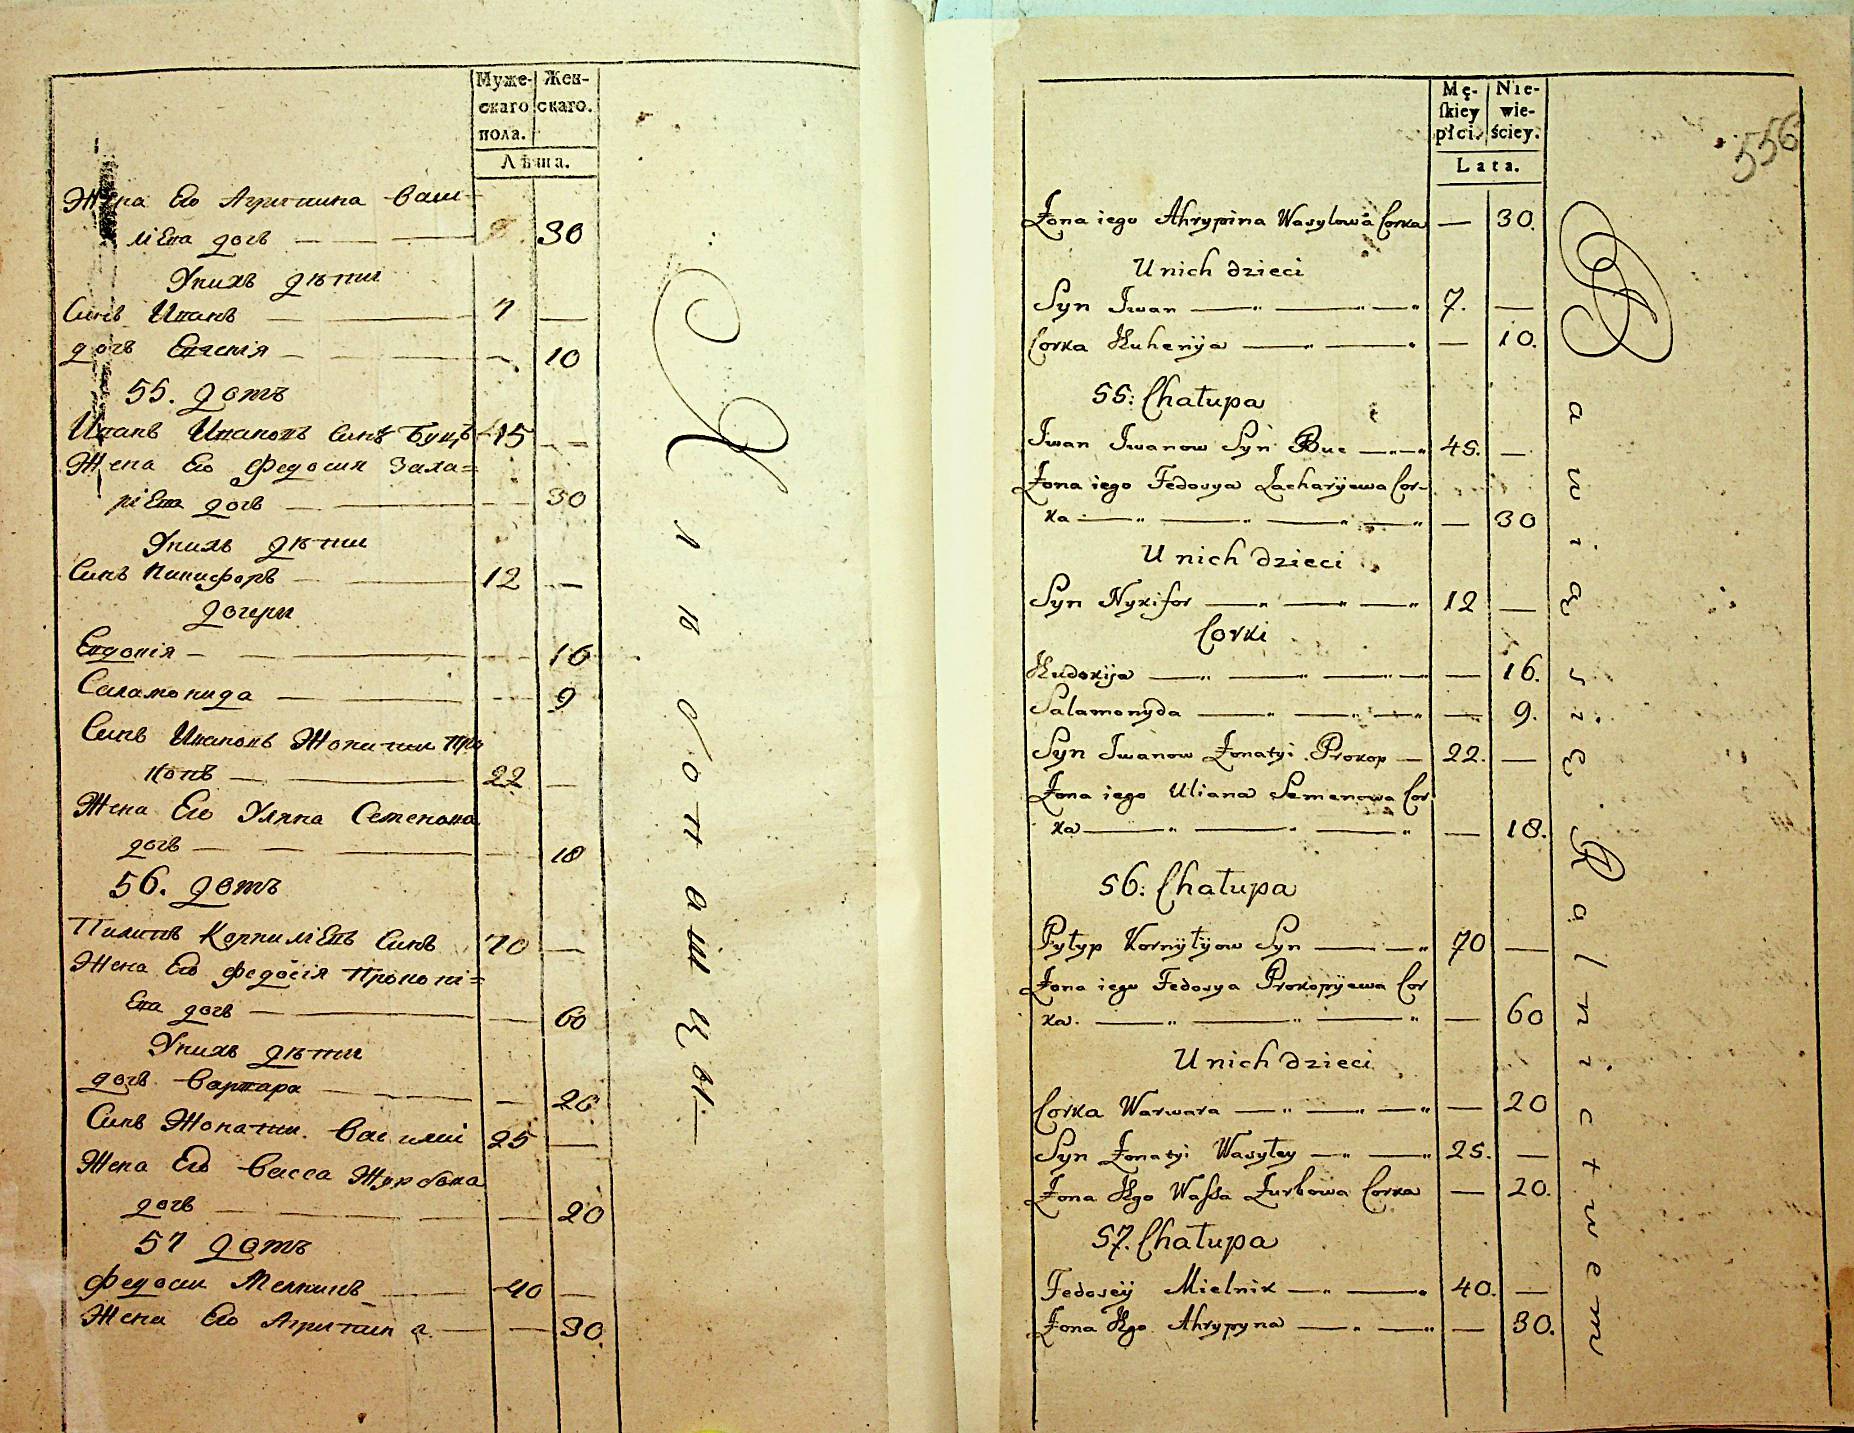 Муже-
скаго
пола.
Жен-
скаго.
Лѣта.
Жена Его Агрипина Васи-
лiева дочь — 30
Унихъ дѣти
Синъ Иванъ — 7 —
дочь Евгенiя — — 10
55. домъ
Иванъ Ивановъ Синъ Буцъ 45 —
Жена Его Федосия Заха=
рiева дочь — — 30
Унихъ дѣти
Синъ Никифоръ — 12 —
дочери
Евдокiя — — 16
Саламонида — — 9
Синъ Ивановъ Жонатии Про
копъ — 22 —
Жена Его Уляна Семенова
дочь — — 18
56. домъ
Пилипъ Корнилiевъ Синъ 70 —
Жена Его Федосiя Прокопi=
Ева дочь — — 60
Унихъ дѣти
дочь Варвара — — 20
Синъ Жонатии Василiи 25 —
Жена Его Васса Журбова
дочь — — 20
57 домъ
Федосии Мелникъ — 40 —
Жена Его Агрипина — — 30
Хлѣбопашцы —
556
Mę-
ſkiey
płci.
Nie-
wie-
ściey.
Lata.
Żona iego Ahrypina Wasylowa Corka — 30.
U nich dzieci
Syn Iwan — 7. —
Corka Euhenija — — 10.
55: Chałupa
Iwan Iwanow Syn Buc — 45. —
Żona iego Fedosya Zacharyiewa Cor-
ka — — 30
U nich dzieci
Syn Nykifor — 12 —
Corki
Eudokija — — 16.
Salamonyda — — 9.
Syn Iwanow Żonatyi Prokop — 22. —
Żona iego Uliana Semenowa Cor
ka — — 18.
56: Chałupa
Pyłyp Kornyłyow Syn — 70 —
Żona iego Fedosya Prokopyiewa Cor
ka. — — 60
U nich dzieci
Corka Warwara — — 20
Syn Żonatyi Wasyley — 25. —
Żona Ego Waſsa Żurbowa Corka — 20.
57. Chałupa
Fedosey Mielnik — 40. —
Żona Ego Ahrypyna — — 30.
Bawią się Rolnictwem